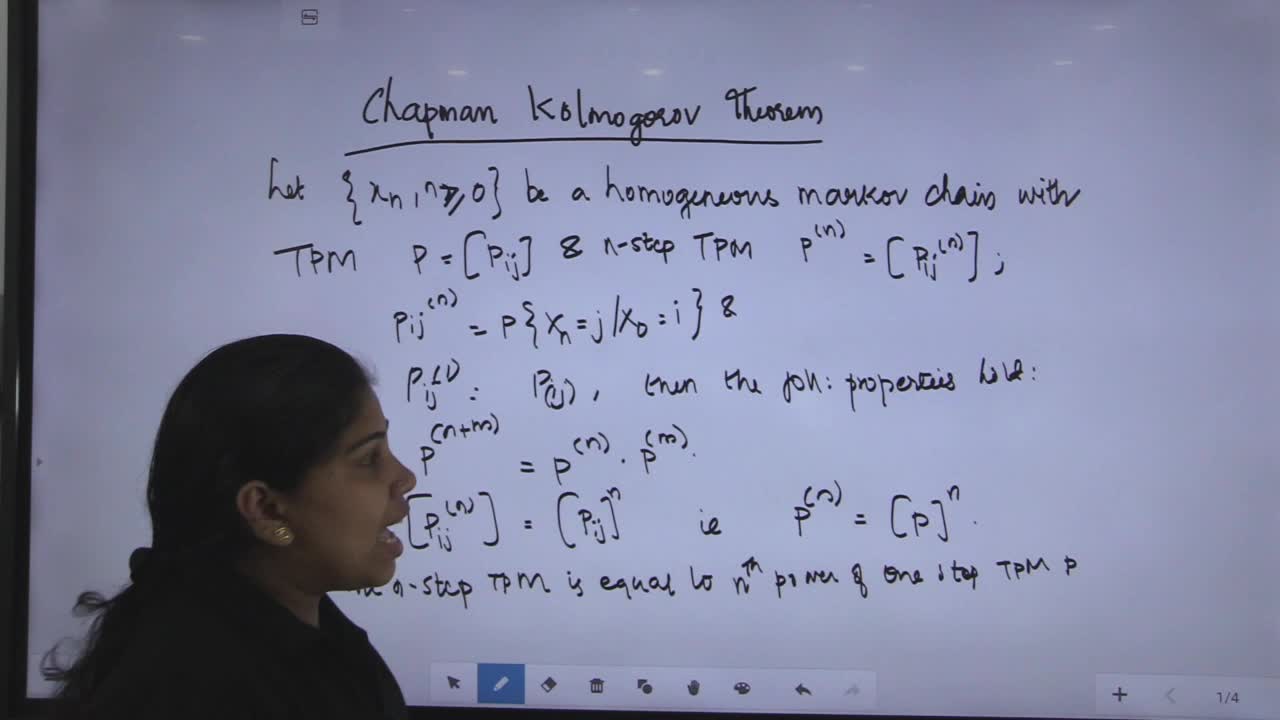 Chapman Kolmogorov Theorem
Let {Xn, n≥0} be a homogeneous markov chain with
TPM P = [Pij] & n-step TPM P^(n) = [Pij^(n)] ;
Pij^(n) = P{Xn = j / X0 = i} &
Pij^(1) = P(ij), then the foll: properties hold:
P^(n+m) = P^(n) . P^(m).
[Pij^(n)] = [Pij]^n ie P^(n) = [P]^n.
n-step TPM is equal to n^th power of one step TPM P
1/4